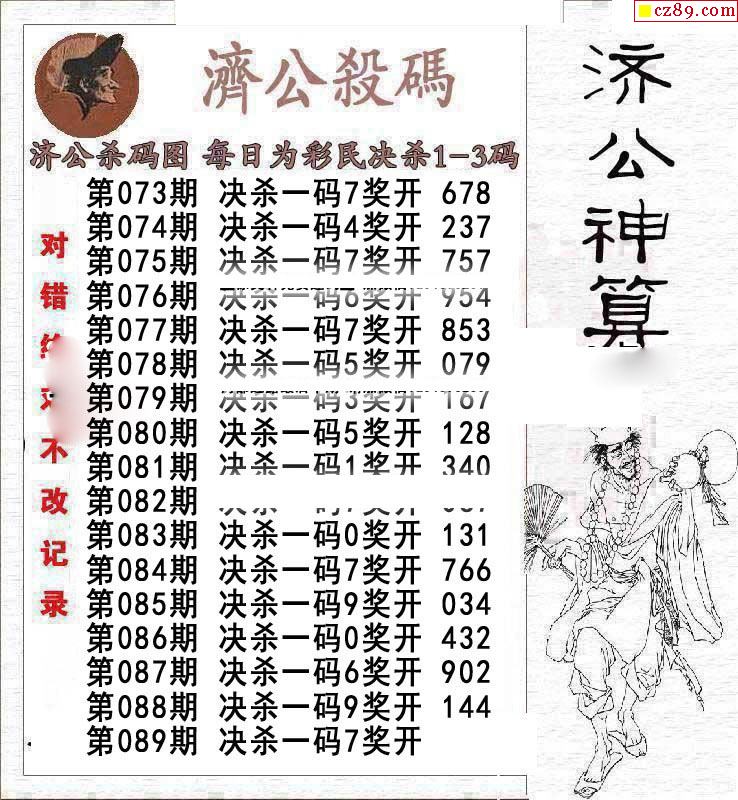 cz89.com
濟公殺碼
济公杀码图 每日为彩民决杀1-3码
第073期 决杀一码7奖开 678
第074期 决杀一码4奖开 237
第075期 决杀一码7奖开 757
第076期 决杀一码6奖开 954
第077期 决杀一码7奖开 853
第078期 决杀一码5奖开 079
第079期 决杀一码3奖开 167
第080期 决杀一码5奖开 128
第081期 决杀一码1奖开 340
第082期
第083期 决杀一码0奖开 131
第084期 决杀一码7奖开 766
第085期 决杀一码9奖开 034
第086期 决杀一码0奖开 432
第087期 决杀一码6奖开 902
第088期 决杀一码9奖开 144
第089期 决杀一码7奖开
对错
不改记录
济公神算